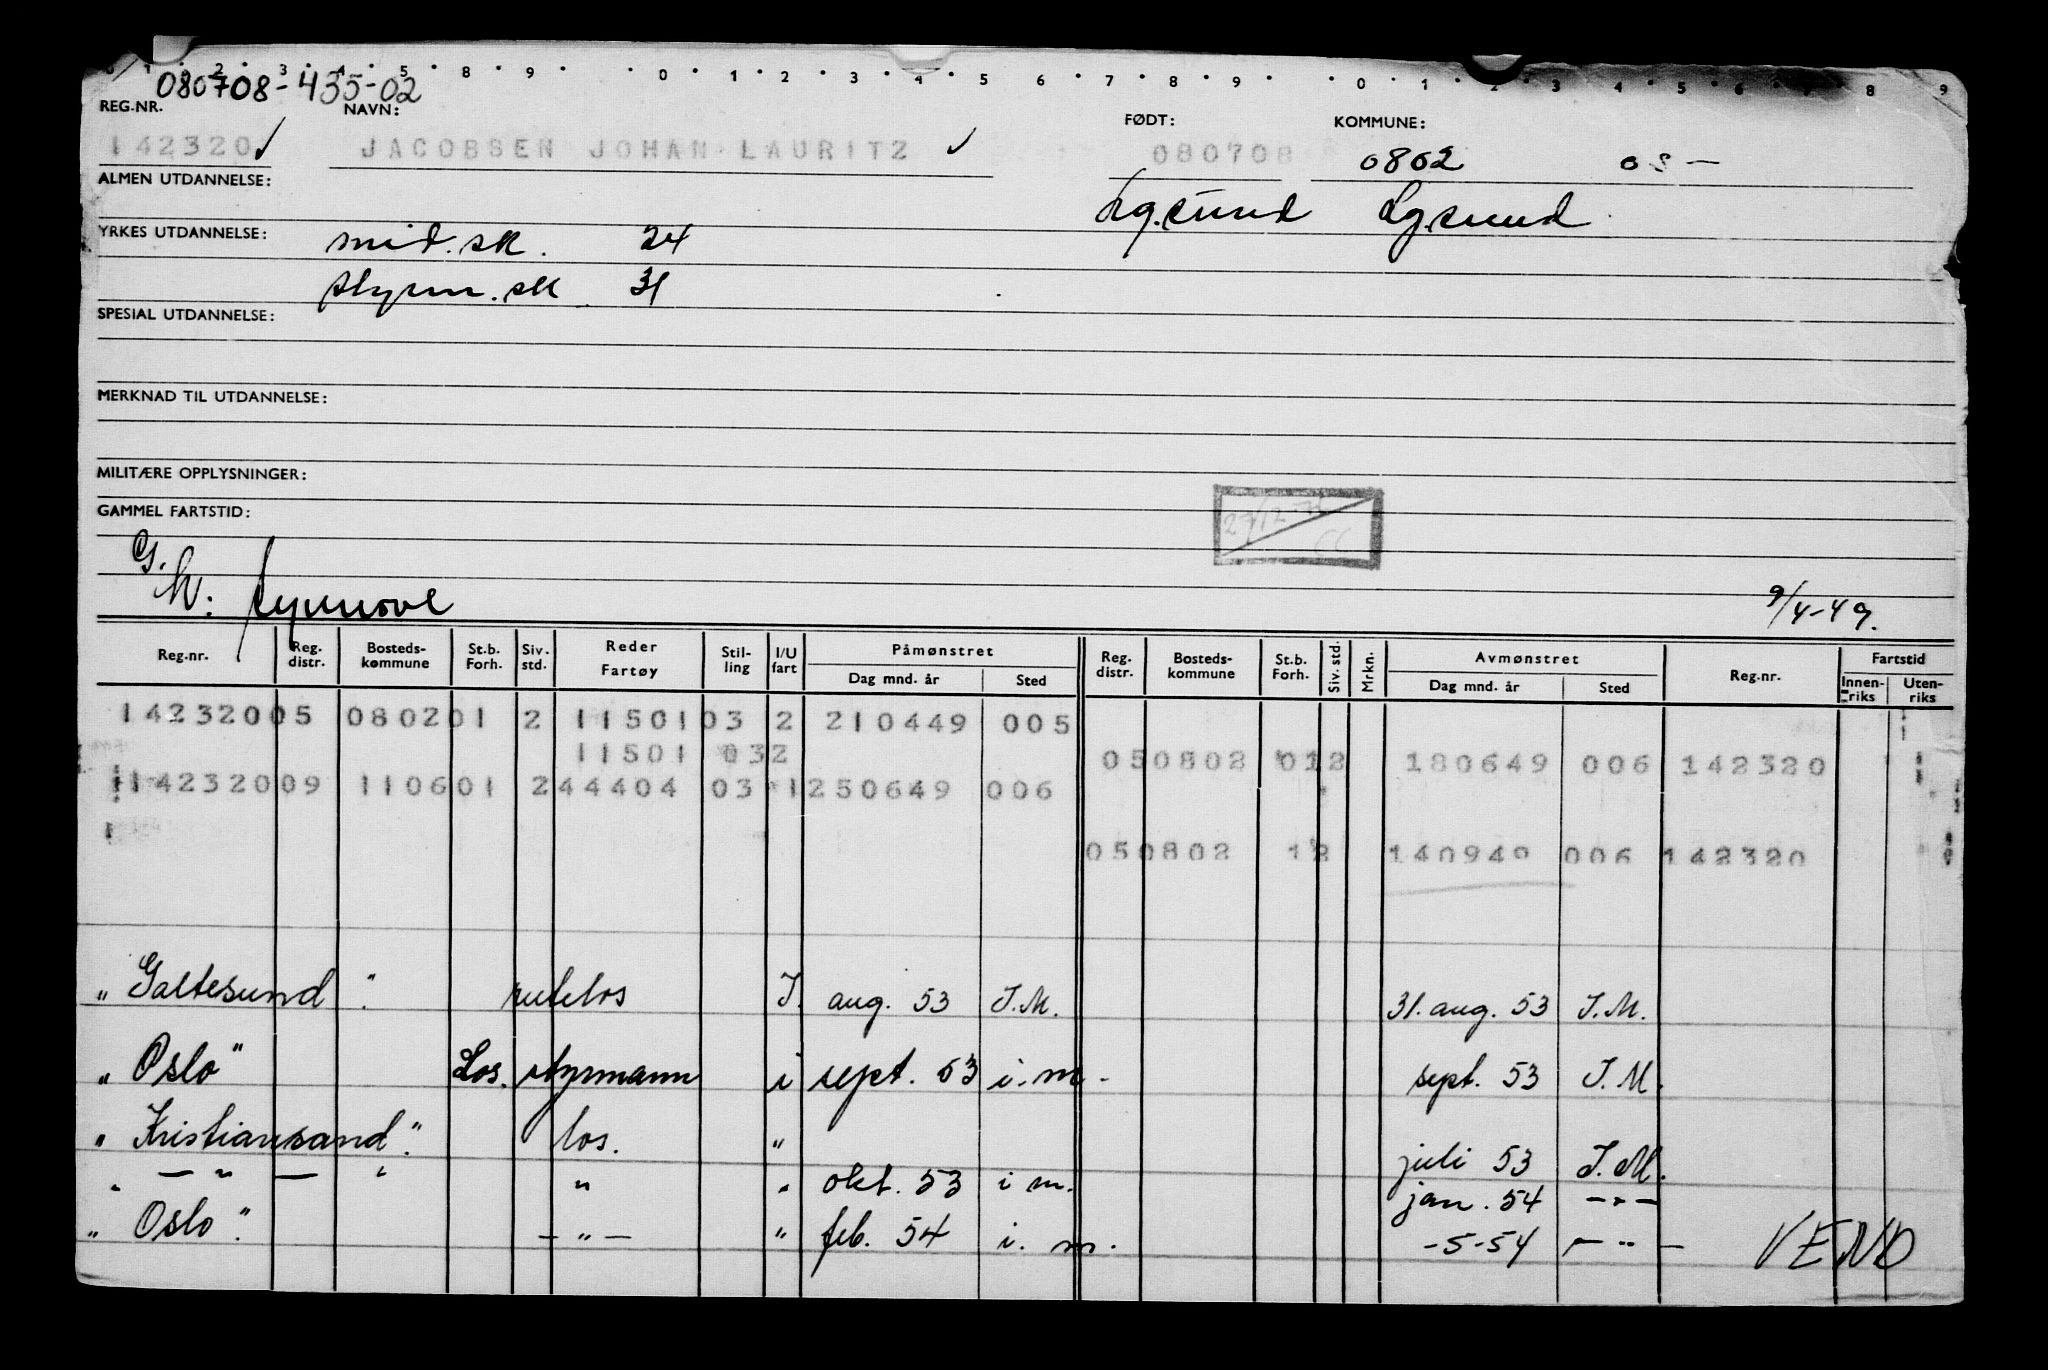 0 1 2 3 4 5 8 9 0 1 2 3 4 5 6 7 8 9 0 1 2 3 4 5 6 7 8 9
080708-435-02
REG.NR. NAVN: FØDT: KOMMUNE:
142320 ✓ JACOBSEN JOHAN LAURITZ ✓ 080708 0802 os –
ALMEN UTDANNELSE: Lg.sund Lg.sund
YRKES UTDANNELSE: mid. sk. 24
styrm. sk. 31
SPESIAL UTDANNELSE:
MERKNAD TIL UTDANNELSE:
MILITÆRE OPPLYSNINGER:
GAMMEL FARTSTID:
G.
9/4-49.
Reg.nr. Reg. distr. Bosteds-kommune St.b. Forh. Siv. std. Reder Fartøy Stil-ling I/U fart Påmønstret Dag mnd. år Sted Reg. distr. Bosteds-kommune St.b. Forh. Siv. std. Mrkn. Avmønstret Dag mnd. år Sted Reg.nr. Fartstid Innen-riks Uten-riks
142320 05 0802 01 2 11501 03 2 210449 005
11501 032 05 0802 012 180649 006 142320
142320 09 1106 01 2 44404 03 1 250649 006
05 0802 12 140949 006 142320
„ Galtesund " rutelos I. aug. 53 I.M. 31. aug. 53 I.M.
„ Oslo" Los. styrmann i sept. 53 i.m. sept. 53 I.M.
„ Kristiansand." los. " juli 53 I.M.
„ — " — " " " okt. 53 i m. jan. 54 — " —
„ Oslo." — " — " feb. 54 i. m. -5-54 — " — VEND